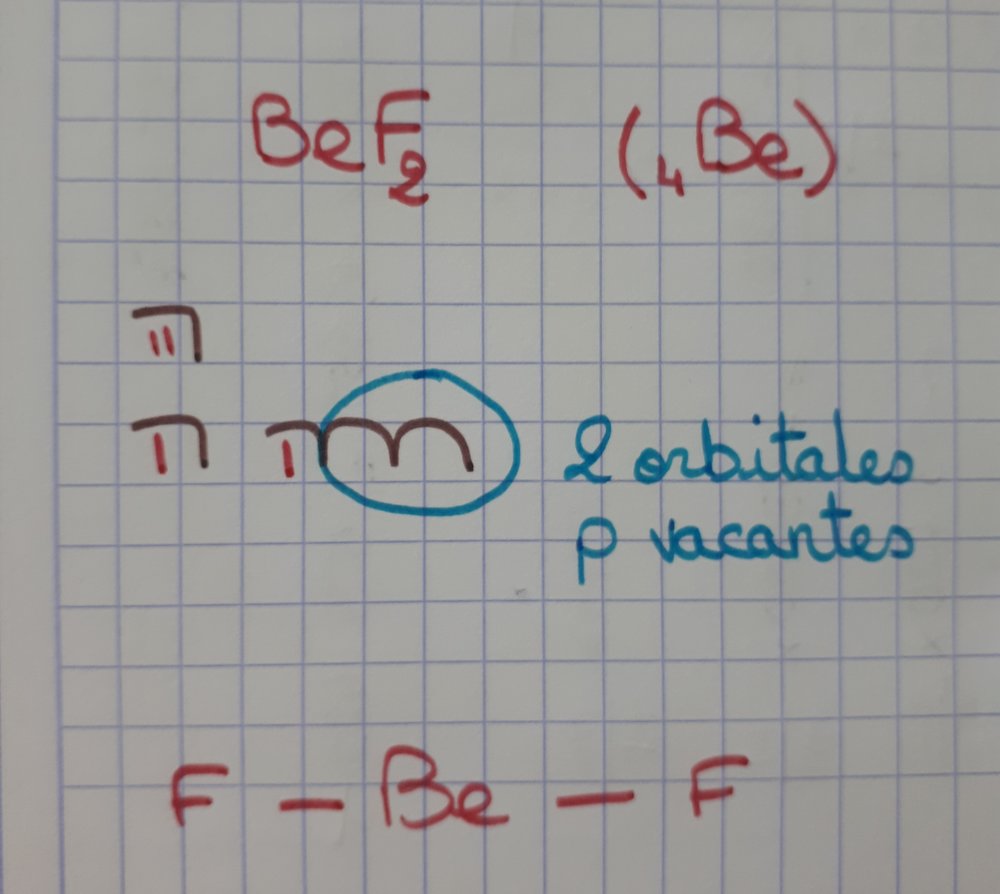 BeF₂ (₄Be)
2 orbitales
p vacantes
F – Be – F